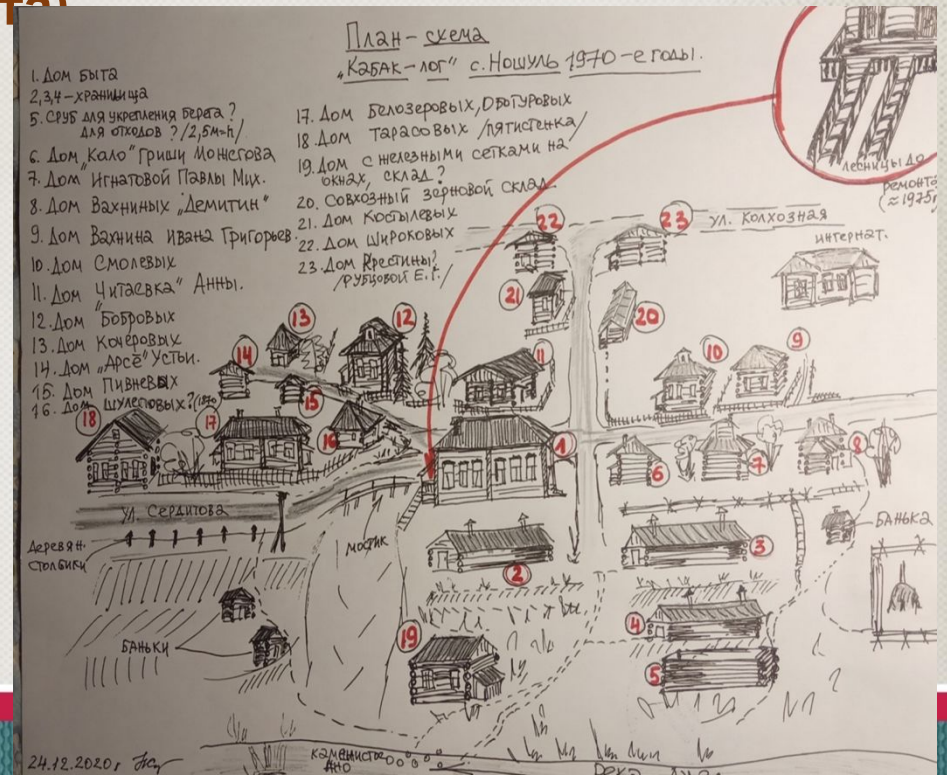 План-схема
"Кабак-лог" с. Ношуль 1970-е годы.
1. Дом быта
2,3,4-хранилища
5. Сруб для укрепления берега?
для отходов? /2,5м=h/
6. Дом "Кало" Гриши Можегова
7. Дом Игнатовой Павлы Мих.
8. Дом Вахниных "Демитин"
9. Дом Вахнина Ивана Григорьев.
10. Дом Смолевых
11. Дом "Читаевка" Анны.
12. Дом Бобровых
13. Дом Кочеровых
14. Дом "Арсё" Устьи.
15. Дом Пивневых
16. Дом Шулеповых?
17. Дом Белозеровых, Оботуровых
18. Дом Тарасовых /пятистенка/
19. Дом с железными сетками на
окнах, склад?
20. Совхозный зерновой склад
21. Дом Костылевых
22. Дом Широковых
23. Дом Крестины?
/Рубцовой Е.Г./
лесницы до
ремонта
(≈1975г
ул. Колхозная
интернат.
22
23
21
20
13
12
14
15
11
10
9
18
17
16
1
6
7
8
ул. Сердитова
мостик
деревян.
столбики
2
3
банька
4
5
19
баньки
24.12.2020г
каменистое
дно
река